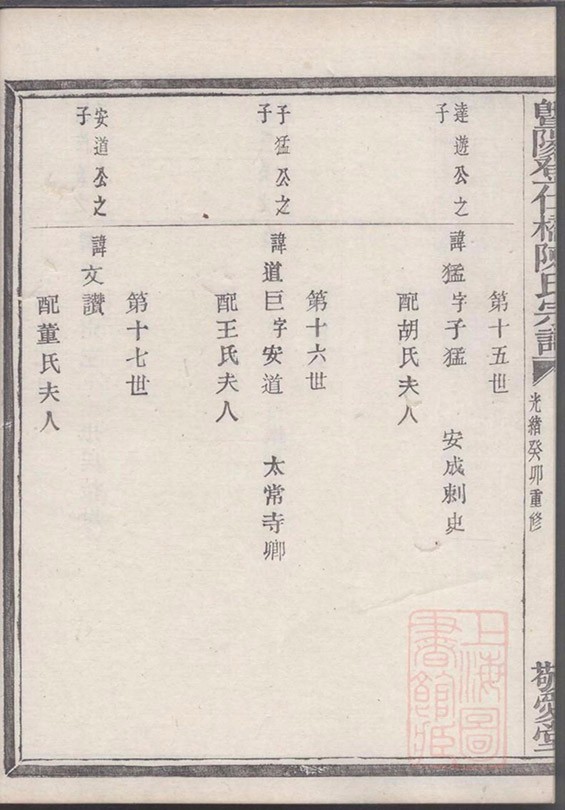 暨陽登仕橋陳氏宗譜
光緒癸卯重修
敬愛堂
第十五世
達遊公之子
諱猛字子猛 安成刺史
配胡氏夫人
第十六世
子猛公之子
諱道巨字安道 太常寺卿
配王氏夫人
第十七世
安道公之子
諱文讚
配董氏夫人
上海圖書館藏